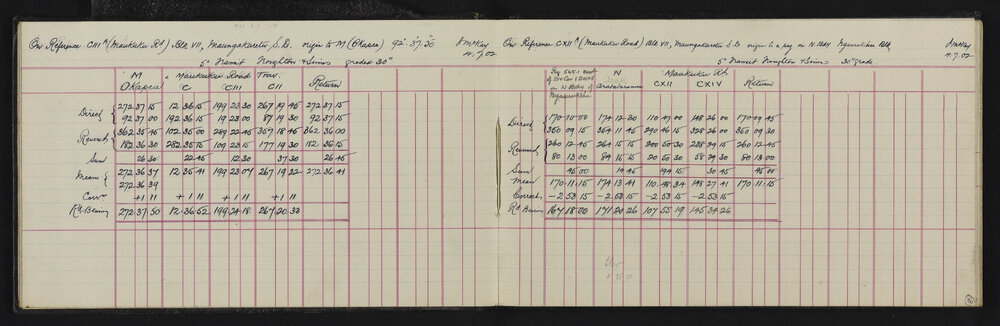 On Reference CIII A (Maukuku Rd) Blk VII, Maungakaretu S.D. origin to M (Okapea) 92° 37' 50" J McKay
4.7.02
5" Transit Troughton & Simms graded 30"
M & Maukuku Road Trav. Return
Okapea C CIII CII
Direct { 272 37 15 12 36 15 199 23 30 267 19 45 272 37 15
92 37 00 192 36 15 19 23 00 87 19 30 92 37 15
Reversed { 362 35 45 102 35 00 289 22 45 357 18 45 362 36 00
182 36 30 282 35 15 109 23 15 177 19 30 182 36 15
Sum 26 30 22 45 12 30 37 30 26 45
Mean { 272 36 37 12 35 41 199 23 07 267 19 22 272 36 41
272 36 39
Corrn +1 11 +1 11 +1 11 +1 11
Rd Bearing 272 37 50 12 36 52 199 24 18 267 20 33
On Reference CXII A (Maukuku Road) Blk VII, Maungakaretu S.D. origin to a peg on N Bdy Blk J McKay
4.7.02
5" Transit Troughton & Simms 30" grade
N Maukuku Rd Return
on N Bdy of CXII CXIV
Direct { 170 10 00 174 12 30 110 47 00 148 26 00 170 09 45
350 09 15 354 11 45 290 46 15 328 26 00 350 09 30
Reversed { 260 12 45 264 15 15 200 50 30 238 29 15 260 12 45
80 13 00 84 15 15 20 50 30 58 29 30 80 13 00
Sum 45 00 14 45 194 15 30 45 45 00
Mean 170 11 15 174 13 41 110 48 34 148 27 41 170 11 15
Correctn −2 53 15 −2 53 15 −2 53 15 −2 53 15
Rd Bearing 167 18 00 171 20 26 107 55 19 145 34 26